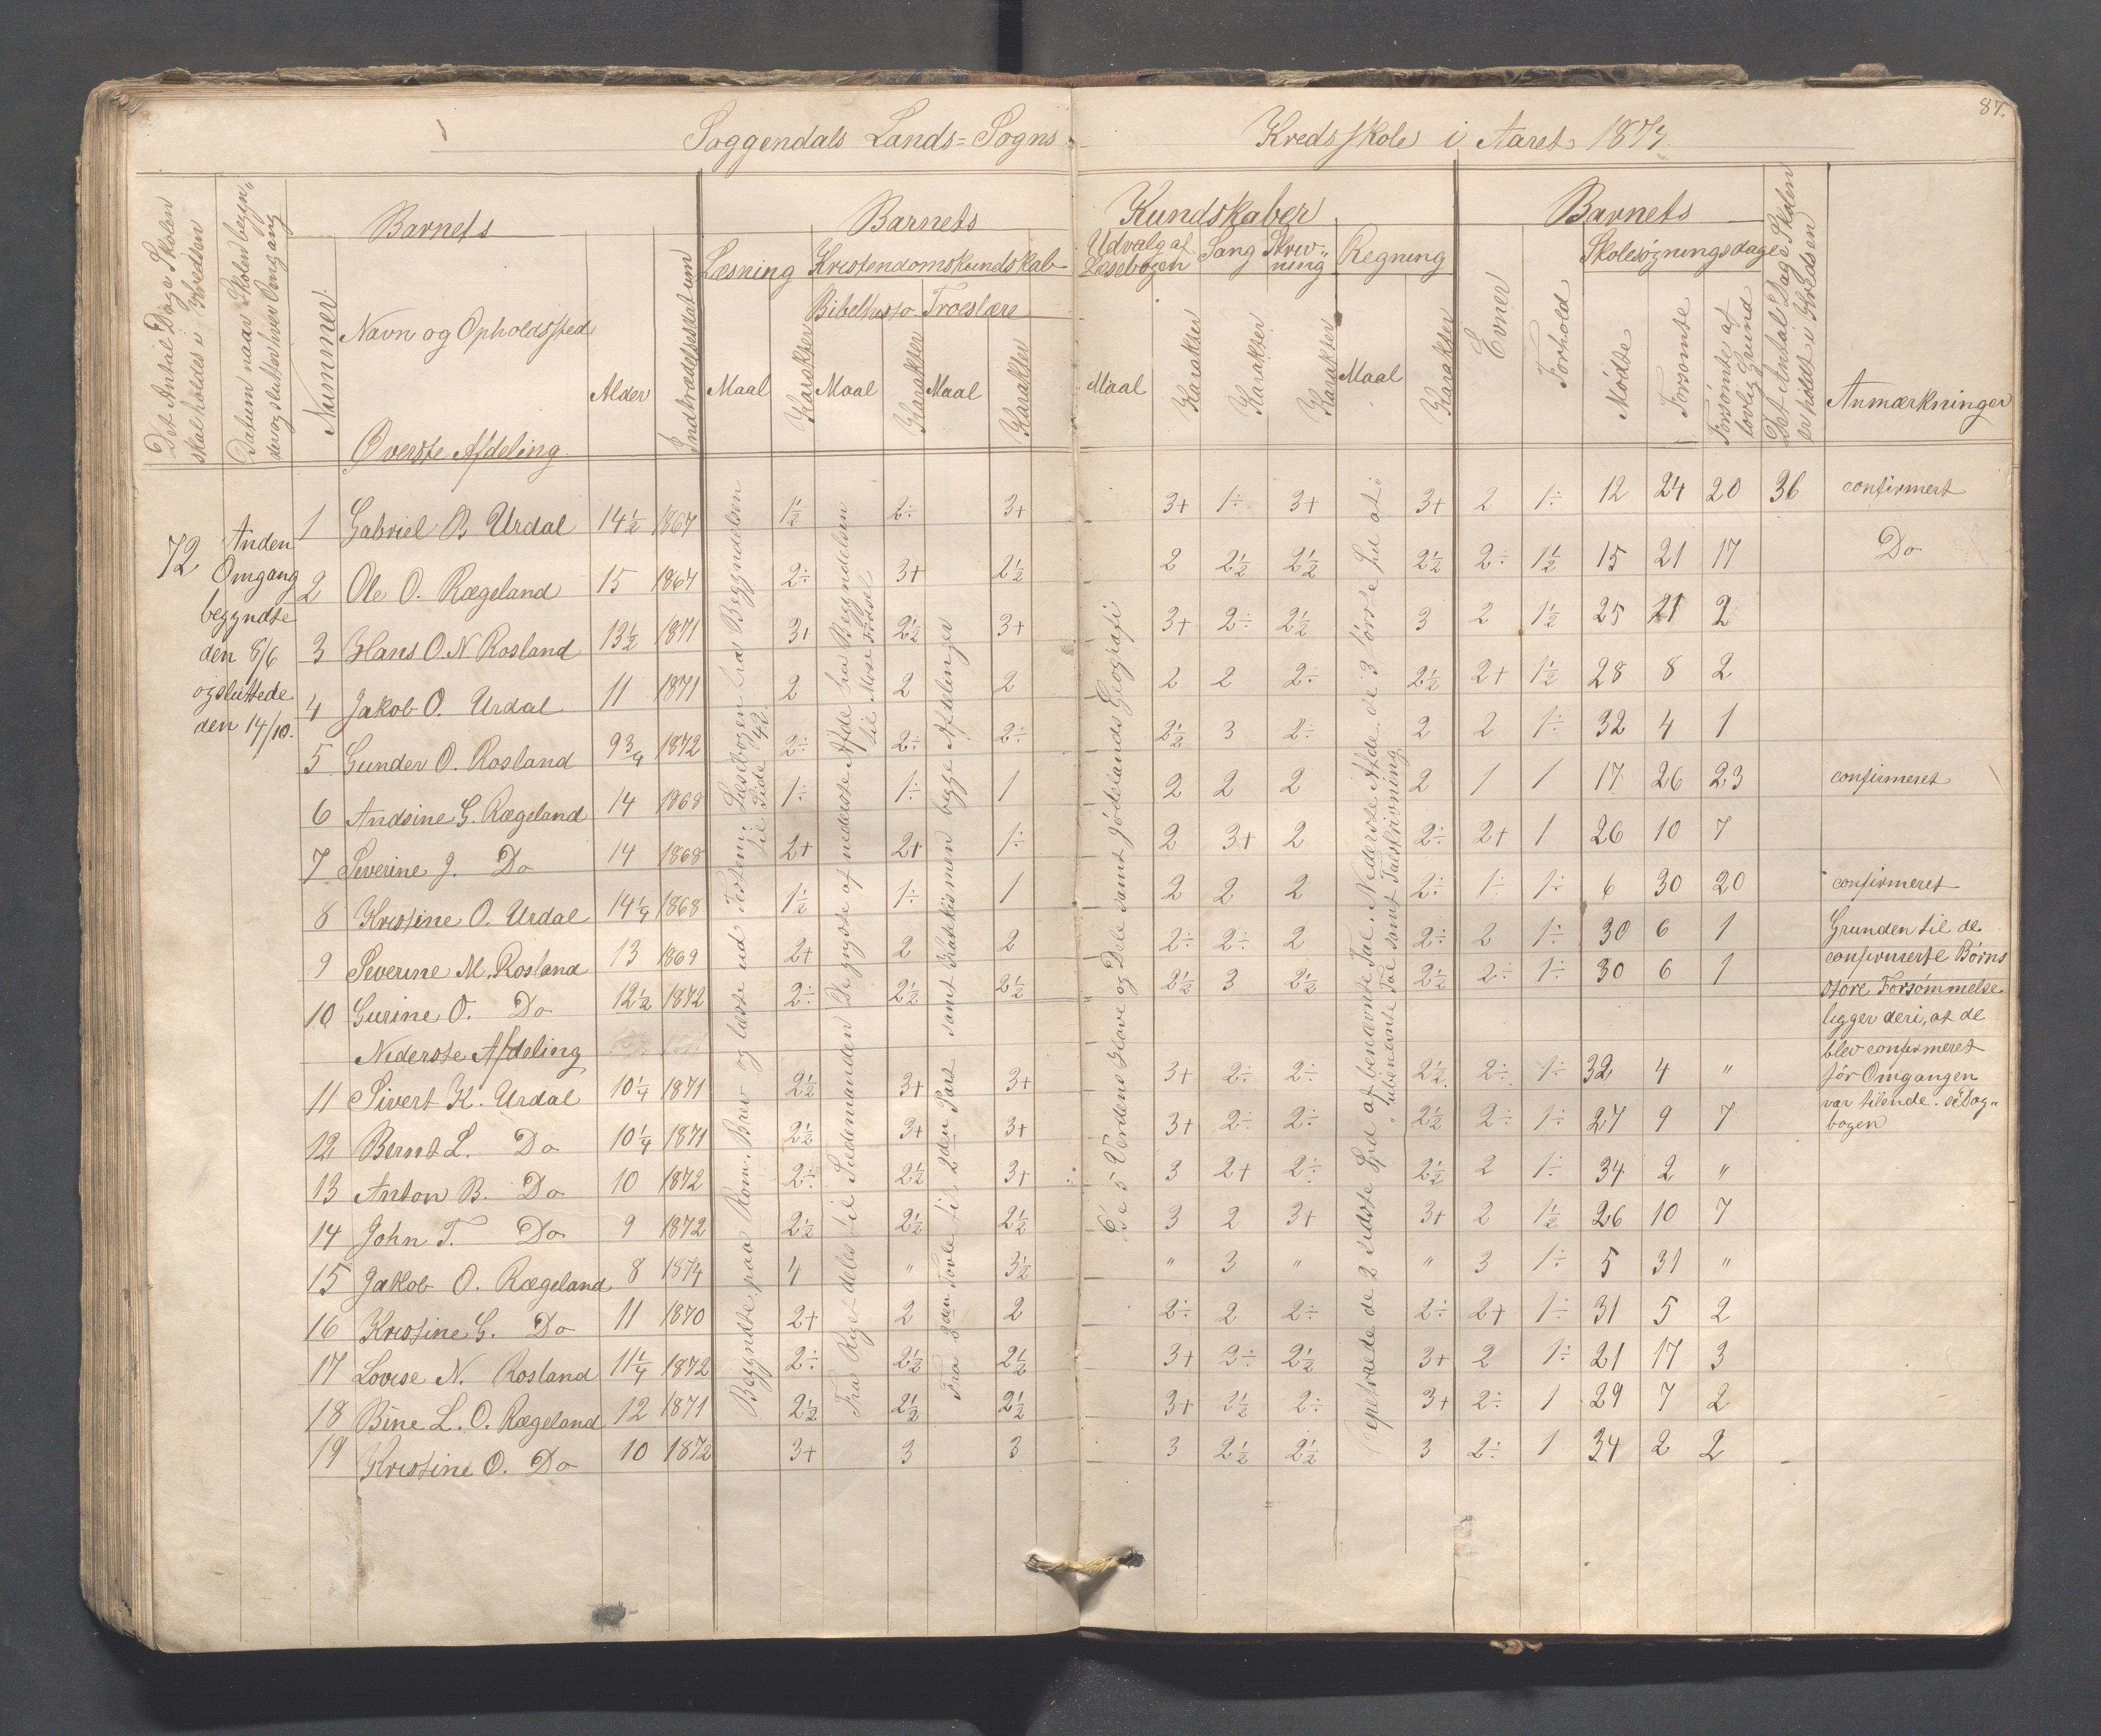 87.
Soggendals Lands=Sogns Kredsskole i Aaret 1874.
Det Antal Dage Skolen skal holdes i Kredsen
Datum naar Skolen begyn„
der og slutter hver Omgang
Nummer
Barnets
Navn og Opholdssted
Alder
Indtrædelsesdatum
Øverste Afdeling
Barnets Kundskaber
Læsning
Kristendomskundskab
Bibelhisto. Troeslære
Maal Karakter Maal Karakter Maal Karakter
Udvalg af Læsebogen
Sang
Skriv„ning
Regning
Maal Karakter Karakter Karakter Maal Karakter
Barnets
Evner
Forhold
Skolesøgningsdage
Mødte
Forsømte
Forsømte af lovlig Grund
Det Antal Dage Skolen er holdt i Kredsen
Anmærkninger
72
Anden
Omgang
begyndte
den 8/6
og sluttede
den 14/10.
1 Gabriel B. Urdal 14½ 1867 1½ 2÷ 3+ 3+ 1÷ 3+ 3+ 2 1÷ 12 24 20 36 confirmert
2 Ole O. Rægeland 15 1867 2÷ 3+ 2½ 2 2½ 2½ 2½ 2÷ 1½ 15 21 17 Do
3 Hans O. N. Rosland 13½ 1871 3+ 2½ 3+ 3+ 2÷ 2½ 3 2 1½ 25 21 2
4 Jakob O. Urdal 11 1871 2 2 2 2 2 2÷ 2½ 2+ 1½ 28 8 2
5 Gunder O. Rosland 9¾ 1872 2÷ 2÷ 2÷ 2½ 3 2÷ 2 2 1÷ 32 4 1
6 Andsine G. Rægeland 14 1868 1÷ 1÷ 1 2 2 2 2 1 1 17 26 23 confirmeret
7 Severine J. Do 14 1868 2+ 2+ 1÷ 2 3+ 2 2÷ 2+ 1 26 10 7
8 Kristine O. Urdal 14¼ 1868 1½ 1÷ 1 2 2 2 2÷ 1÷ 1÷ 6 30 20 confirmeret
9 Severine M. Rosland 13 1869 2+ 2 2 2÷ 2÷ 2 2÷ 2 1÷ 30 6 1
10 Gurine O. Do 12½ 1872 2÷ 2½ 2½ 2½ 3 2½ 2½ 2÷ 1÷ 30 6 1
Grunden til de
confirmerte Børns
store Forsømmelse
ligger deri, at de
blev confirmeret
før Omgangen
var tilende. se Dag„
bogen
Nederste Afdeling
11 Sivert K. Urdal 10¼ 1871 2½ 3+ 3+ 3+ 2÷ 2÷ 2½ 2÷ 1÷ 32 4 „
12 Bernt L. Do 10¼ 1871 2½ 3+ 3+ 3+ 2÷ 2÷ 2½ 2÷ 1÷ 27 9 7
13 Anton B. Do 10 1872 2÷ 2½ 3+ 3 2+ 2÷ 2½ 2 1÷ 34 2 „
14 John T. Do 9 1872 2½ 2½ 2½ 3 2 3+ 3+ 2 1½ 26 10 7
15 Jakob O. Rægeland 8 1874 4 „ 3½ „ 3 „ „ 3 1÷ 5 31 „
16 Kristine G. Do 11 1870 2+ 2 2 2÷ 2 2÷ 2÷ 2+ 1÷ 31 5 2
17 Lovise N. Rosland 11¼ 1872 2÷ 2½ 2½ 3+ 2÷ 2½ 3+ 2 1÷ 21 17 3
18 Bine L. O. Rægeland 12 1871 2½ 2½ 2½ 3+ 2½ 2÷ 3+ 2÷ 1 29 7 2
19 Kristine O. Do 10 1872 3+ 3 3 3 2½ 2½ 3 2÷ 1 34 2 2
Begyndte paa Rom. Brev og læste ud Testam: Læsebogen fra Begyndelsen
til Side 42.
Fra Riget deles til Sædemanden De yngste af nederste Afde fra Begyndelsen
til Mose Fødsel
Fra 3den Tavle til 2den Part samt Katekismen begge Afdelinger
De 5 Verdens Have og Dele samt Jødelands Geografi
Repeterede de 2 sidste Spd af benævnte Tal. Nederste Afde. de 3 første Spd at i
ubenævnte Tal samt Talskrivning